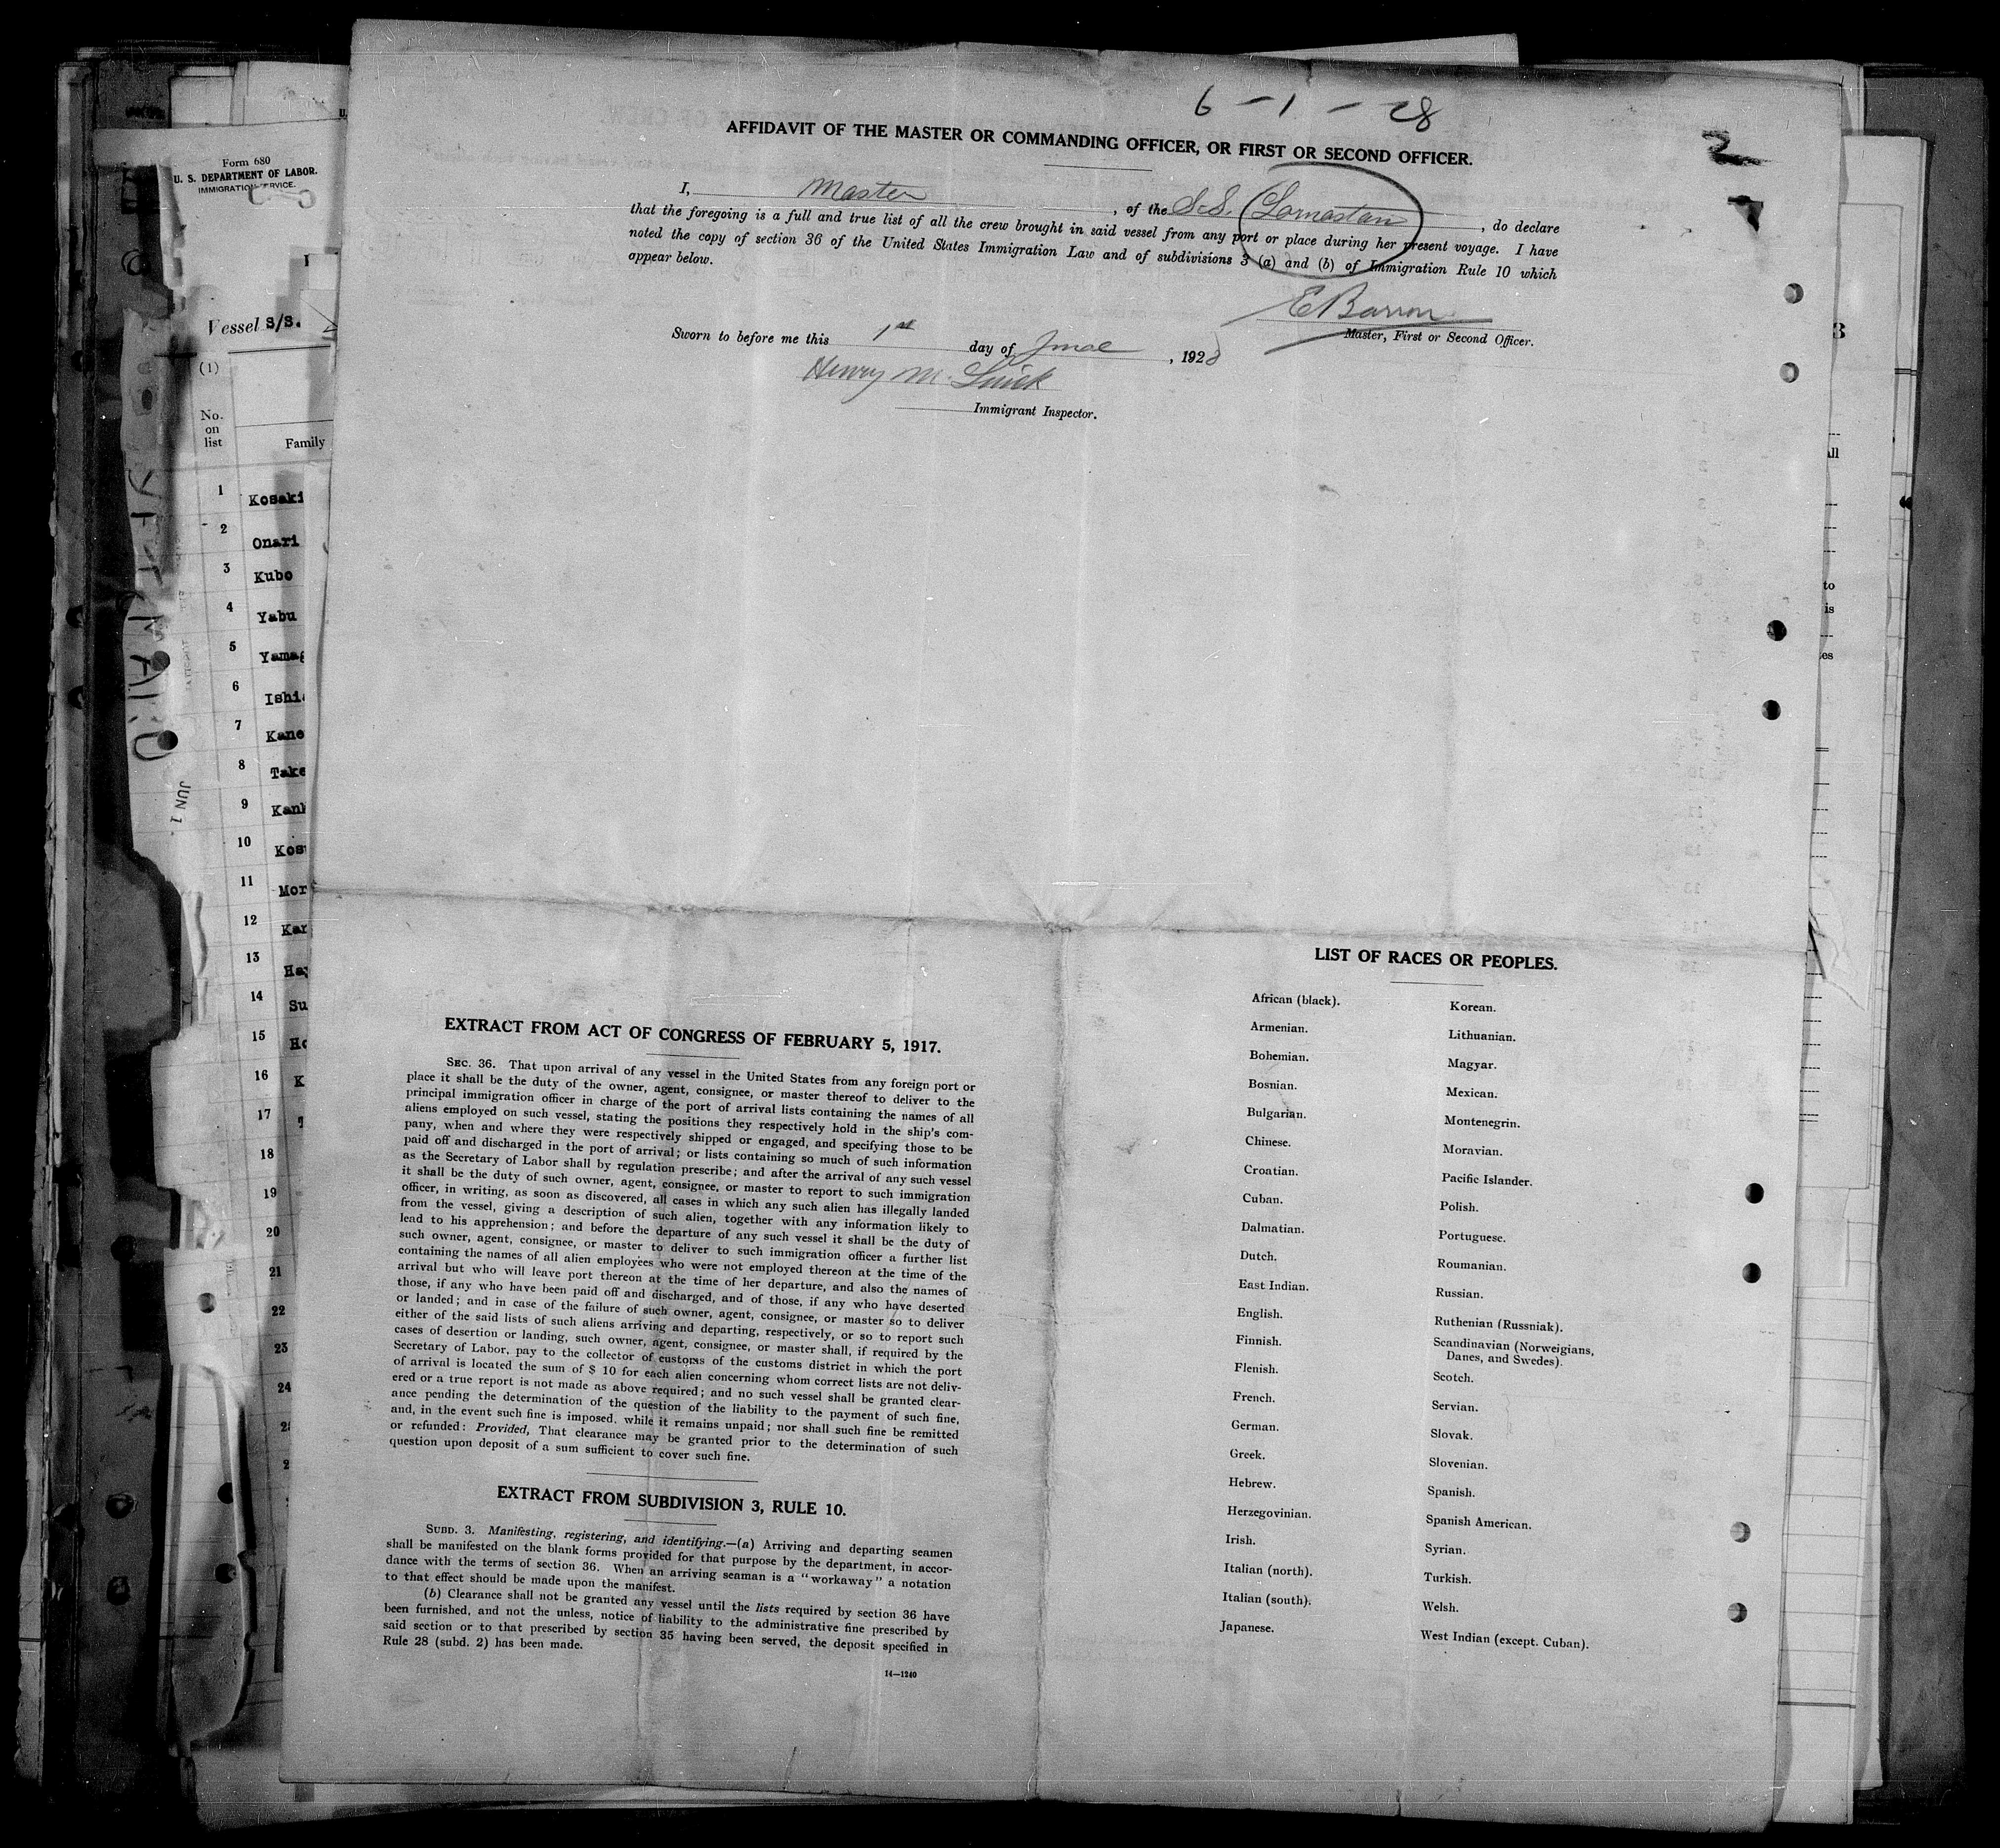 6-1-28
AFFIDAVIT OF THE MASTER OR COMMANDING OFFICER, OR FIRST OR SECOND OFFICER.
2
I, Master, of the S.S. Lomastan, do declare
that the foregoing is a full and true list of all the crew brought in said vessel from any port or place during her present voyage. I have
noted the copy of section 36 of the United States Immigration Law and of subdivisions 3 (a) and (b) of Immigration Rule 10 which
appear below.
E Barron
Master, First or Second Officer.
Sworn to before me this 1st day of June, 1928
Henry M.
Immigrant Inspector.
EXTRACT FROM ACT OF CONGRESS OF FEBRUARY 5, 1917.
SEC. 36. That upon arrival of any vessel in the United States from any foreign port or
place it shall be the duty of the owner, agent, consignee, or master thereof to deliver to the
principal immigration officer in charge of the port of arrival lists containing the names of all
aliens employed on such vessel, stating the positions they respectively hold in the ship's com-
pany, when and where they were respectively shipped or engaged, and specifying those to be
paid off and discharged in the port of arrival; or lists containing so much of such information
as the Secretary of Labor shall by regulation prescribe; and after the arrival of any such vessel
it shall be the duty of such owner, agent, consignee, or master to report to such immigration
officer, in writing, as soon as discovered, all cases in which any such alien has illegally landed
from the vessel, giving a description of such alien, together with any information likely to
lead to his apprehension; and before the departure of any such vessel it shall be the duty of
such owner, agent, consignee, or master to deliver to such immigration officer a further list
containing the names of all alien employees who were not employed thereon at the time of the
arrival but who will leave port thereon at the time of her departure, and also the names of
those, if any who have been paid off and discharged, and of those, if any who have deserted
or landed; and in case of the failure of such owner, agent, consignee, or master so to deliver
either of the said lists of such aliens arriving and departing, respectively, or so to report such
cases of desertion or landing, such owner, agent, consignee, or master shall, if required by the
Secretary of Labor, pay to the collector of customs of the customs district in which the port
of arrival is located the sum of $ 10 for each alien concerning whom correct lists are not deliv-
ered or a true report is not made as above required; and no such vessel shall be granted clear-
ance pending the determination of the question of the liability to the payment of such fine,
and, in the event such fine is imposed, while it remains unpaid; nor shall such fine be remitted
or refunded: Provided, That clearance may be granted prior to the determination of such
question upon deposit of a sum sufficient to cover such fine.
EXTRACT FROM SUBDIVISION 3, RULE 10.
SUBD. 3. Manifesting, registering, and identifying.—(a) Arriving and departing seamen
shall be manifested on the blank forms provided for that purpose by the department, in accor-
dance with the terms of section 36. When an arriving seaman is a "workaway" a notation
to that effect should be made upon the manifest.
(b) Clearance shall not be granted any vessel until the lists required by section 36 have
been furnished, and not the unless, notice of liability to the administrative fine prescribed by
said section or to that prescribed by section 35 having been served, the deposit specified in
Rule 28 (subd. 2) has been made.
14—1240
LIST OF RACES OR PEOPLES.
African (black).
Armenian.
Bohemian.
Bosnian.
Bulgarian.
Chinese.
Croatian.
Cuban.
Dalmatian.
Dutch.
East Indian.
English.
Finnish.
Flenish.
French.
German.
Greek.
Hebrew.
Herzegovinian.
Irish.
Italian (north).
Italian (south).
Japanese.
Korean.
Lithuanian.
Magyar.
Mexican.
Montenegrin.
Moravian.
Pacific Islander.
Polish.
Portuguese.
Roumanian.
Russian.
Ruthenian (Russniak).
Scandinavian (Norweigians,
Danes, and Swedes).
Scotch.
Servian.
Slovak.
Slovenian.
Spanish.
Spanish American.
Syrian.
Turkish.
Welsh.
West Indian (except. Cuban).
Form 680
U. S. DEPARTMENT OF LABOR.
IMMIGRATION SERVICE.
Vessel S/S.
(1)
No.
on
list
Family
1 Kosaki
2 Onari
3 Kubo
4 Yabu
5 Yamag
6 Ishi
7 Kane
8 Take
9 Kank
10 Kos
11 Mor
12 Kar
13 Ha
14 Su
15 Ho
16 K
17
18
19
20
21
22
23
24
MARU
JUN 1